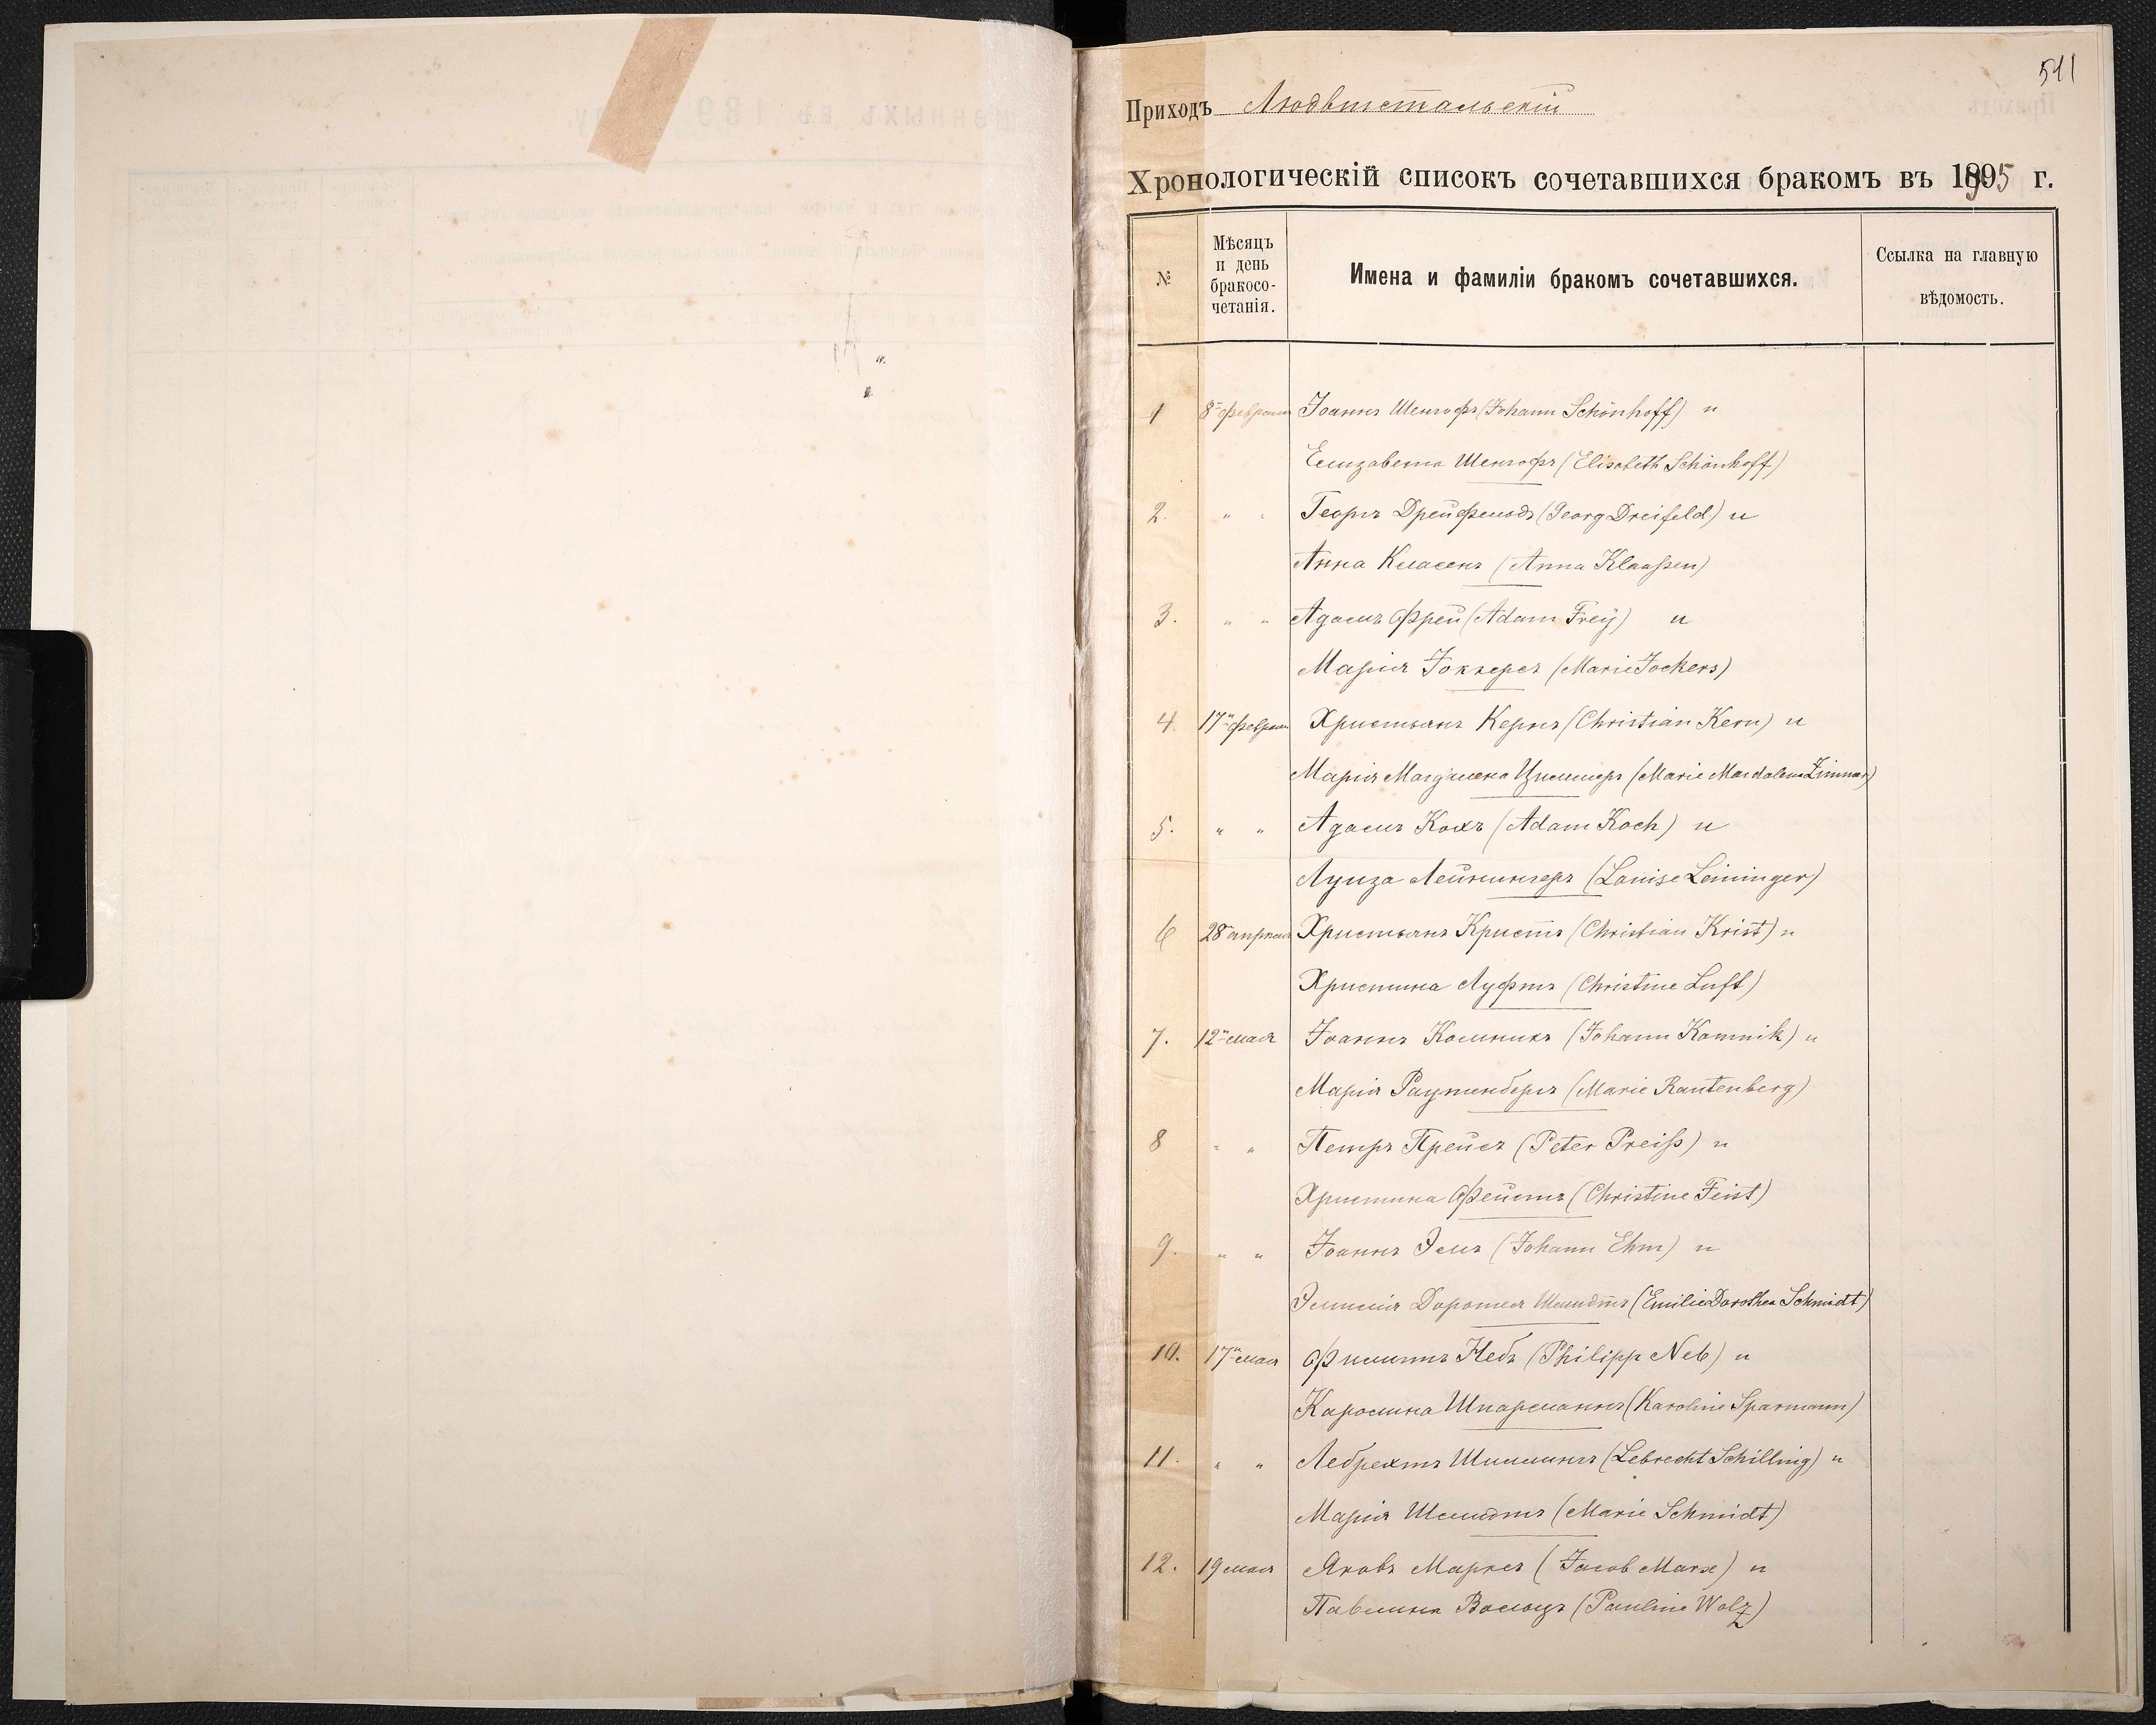 511
Приходъ Людвигстальскій
Хронологическій списокъ сочетавшихся бракомъ въ 1895 г.
№
Мѣсяцъ и день бракосо-четанія.
Имена и фамиліи бракомъ сочетавшихся.
Ссылка на главную вѣдомость.
1 8го февраля Іоаннъ Шенгофъ (Johann Schönhoff) и
Елизавета Шенгофъ (Elisabeth Schönhoff)
2. " " Георгъ Дрейфельдъ (Georg Dreifeld) и
Анна Класенъ (Anna Klaaßen)
3. " " Адамъ Фрей (Adam Freÿ) и
Марія Іоккерсъ (Marie Jockers)
4. 17го февраля Христьянъ Кернъ (Christian Kern) и
Марія Магдалена Циммеръ (Marie Magdalena Zimmer)
5. " " Адамъ Кохъ (Adam Koch) и
Луиза Лейнингеръ (Louise Leininger)
6 28го апрѣля Христьянъ Кристъ (Christian Krist) и
Христина Луфтъ (Christine Luft)
7. 12го мая Іоаннъ Комникъ (Johann Komnik) и
Марія Раутенбергъ (Marie Rautenberg)
8 " " Петръ Прейсъ (Peter Preiß) и
Христина Фейстъ (Christine Feist)
9. " " Іоаннъ Эмъ (Johann Ehm) и
Эмилія Доротея Шмидтъ (Emilie Dorothea Schmidt)
10. 17го мая Филиппъ Небъ (Philipp Neb) и
Каролина Шпарманнъ (Karoline Sparmann)
11. " " Лебрехтъ Шиллингъ (Lebrecht Schilling) и
Марія Шмидтъ (Marie Schmidt)
12. 19 мая Яковъ Марксъ (Jacob Marx) и
Павлина Вольцъ (Pauline Wolz)